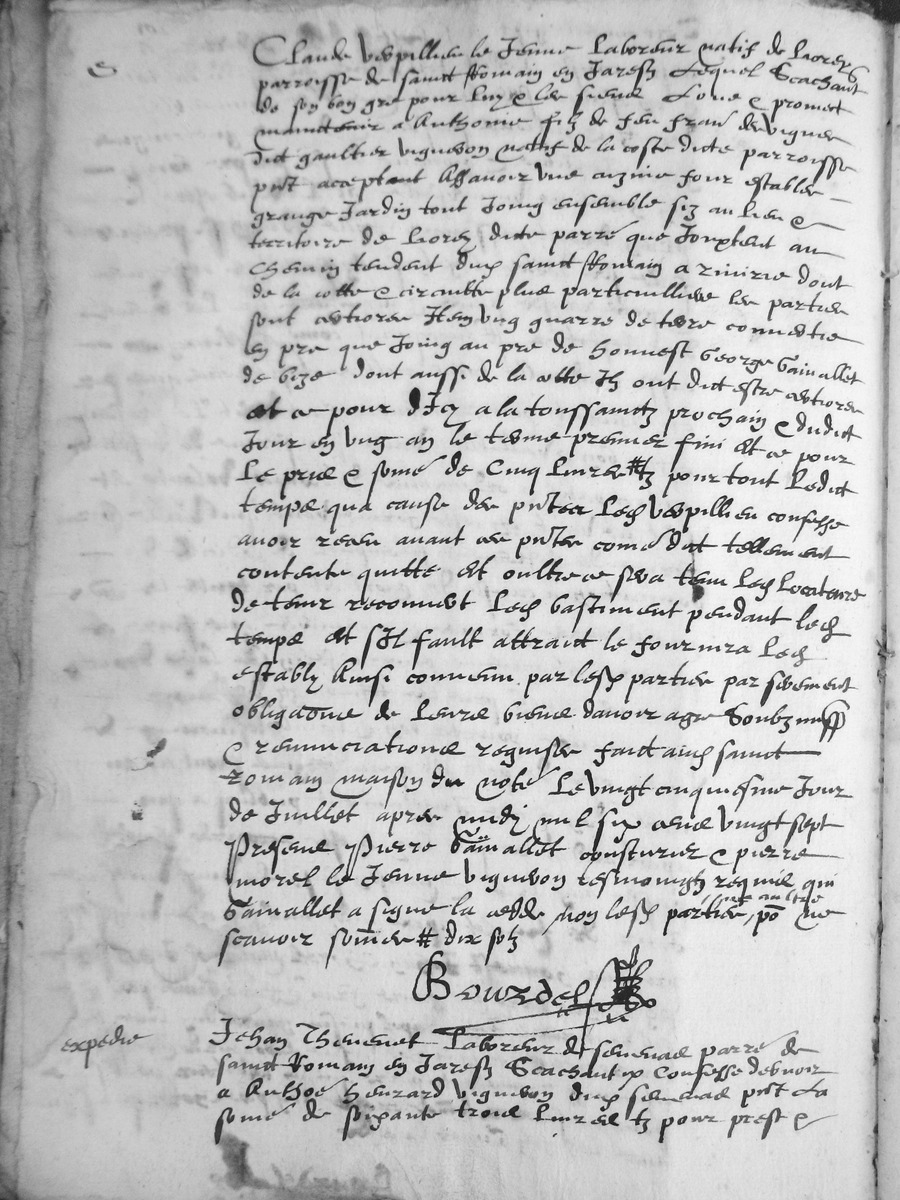 Claude verpillieu le Jeune Laboreur natif de Liorey
parroisse de sainct Romain en Jarestz Lequel Scachant
de son bon gre pour luy & les siens Loue & promect
mainctenir a Anthonie filz de feu fran des vignes
dict gaultier vigneron natif de la coste dicte parroisse
pnt aceptant Assavoir une cuzine four estables
grange Jardin tout Joing ensemble siz au lieu &
territoire de Liorey dicte parre que Jouxtent au
chemin tendent dud sainct Romain a rivirie dont
de la cotte & circuitte plus particulliere les parties
sont certiores Item ung quarre de terre convertie
en pre que Joing au pre de honnest George Gairallet
de bize dont aussi de la cotte Ilz ont dict estre certiores
Et ce pour d Icy a la toussainctz prochain & dudict
Jour en ung an le terme premier fini Et ce pour
le pris & some de Cinq livres tz pour tout Ledict
temps qua cause des pntes Led verpillieu confesse
avoir receu avant ces pntes come dict tellement
contente quitte Et oultre ce sera tenu Led Locataire
de tenir recouvert Led bastiment pendant led
temps Et s Il fault attraict le fournira Led
estably Ainsi convenu par lesd parties par serement
obligaone de leurs biens davoir agre Soubzmiss
& renunciations requises faict aud sainct
romain maison du note Le vingt cinquiesme Jour
de Juillet apres midy mil six cens vingt sept
Presens Pierre Gairallet cousturier & pierre
morel le Jeune vigneron tesmoingtz requis qui
Gairallet a signe la cedde non lesd parties, ne aultre po ne
scavoir somes dix solz
Bourdel
expedie
Jehan Thevenet Laboreur de senevas parre de
sainct Romain en Jarestz Scachant &c Confesse debvoir
a Anthoe henrard vigneron dud senevas pnt La
some de soixante trois livres tz pour prest &